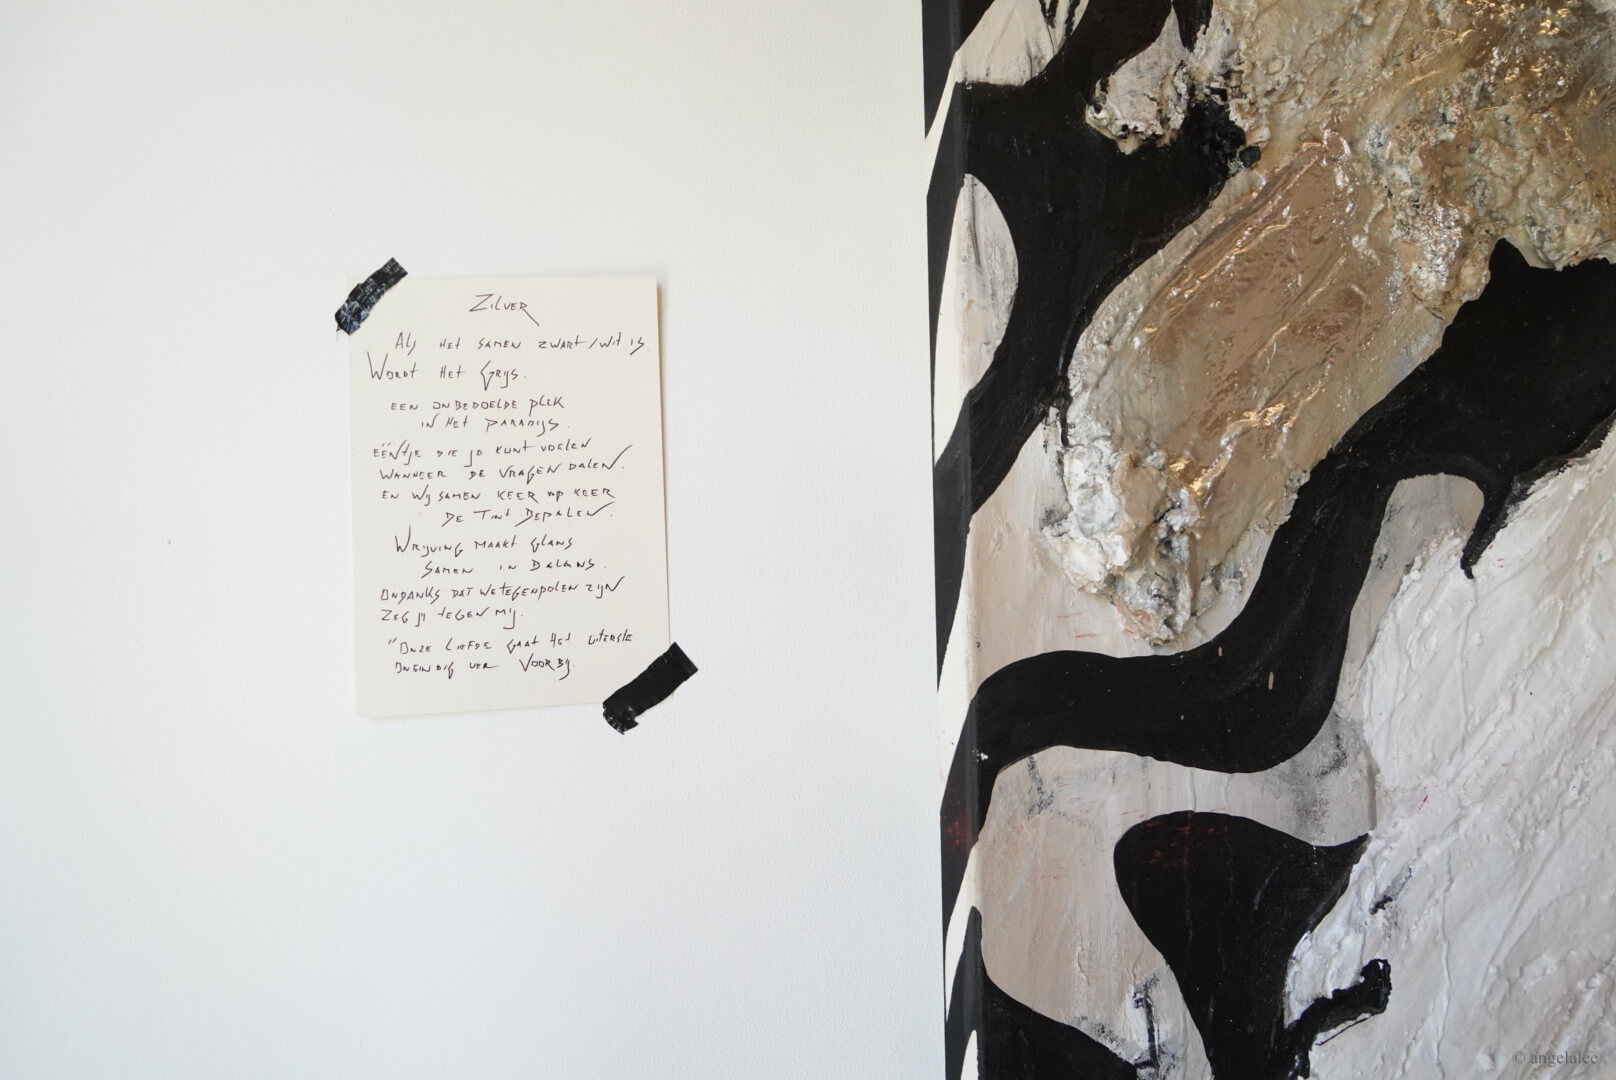 Zilver
Als het samen zwart/wit is
Wordt het Grijs.
een onbedoelde plek
in het paradijs.
ééntje die je kunt voelen
wanneer de vragen dalen.
en wij samen keer op keer
de tint bepalen.
Wrijving maakt glans
samen in balans.
ondanks dat we tegenpolen zijn
zeg jij tegen mij.
"Onze liefde gaat het uiterste
oneindig ver voorbij.
© angelalee